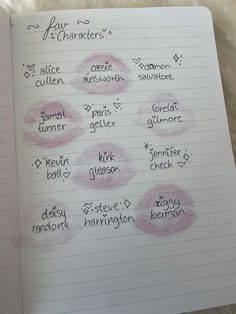 fav
Characters
alice cassie damon
cullen ainsworth salvatore
jamal paris lorelai
turner geller gilmore
kevin kirk jennifer
ball gleason check
daisy steve ziggy
randone harrington berman